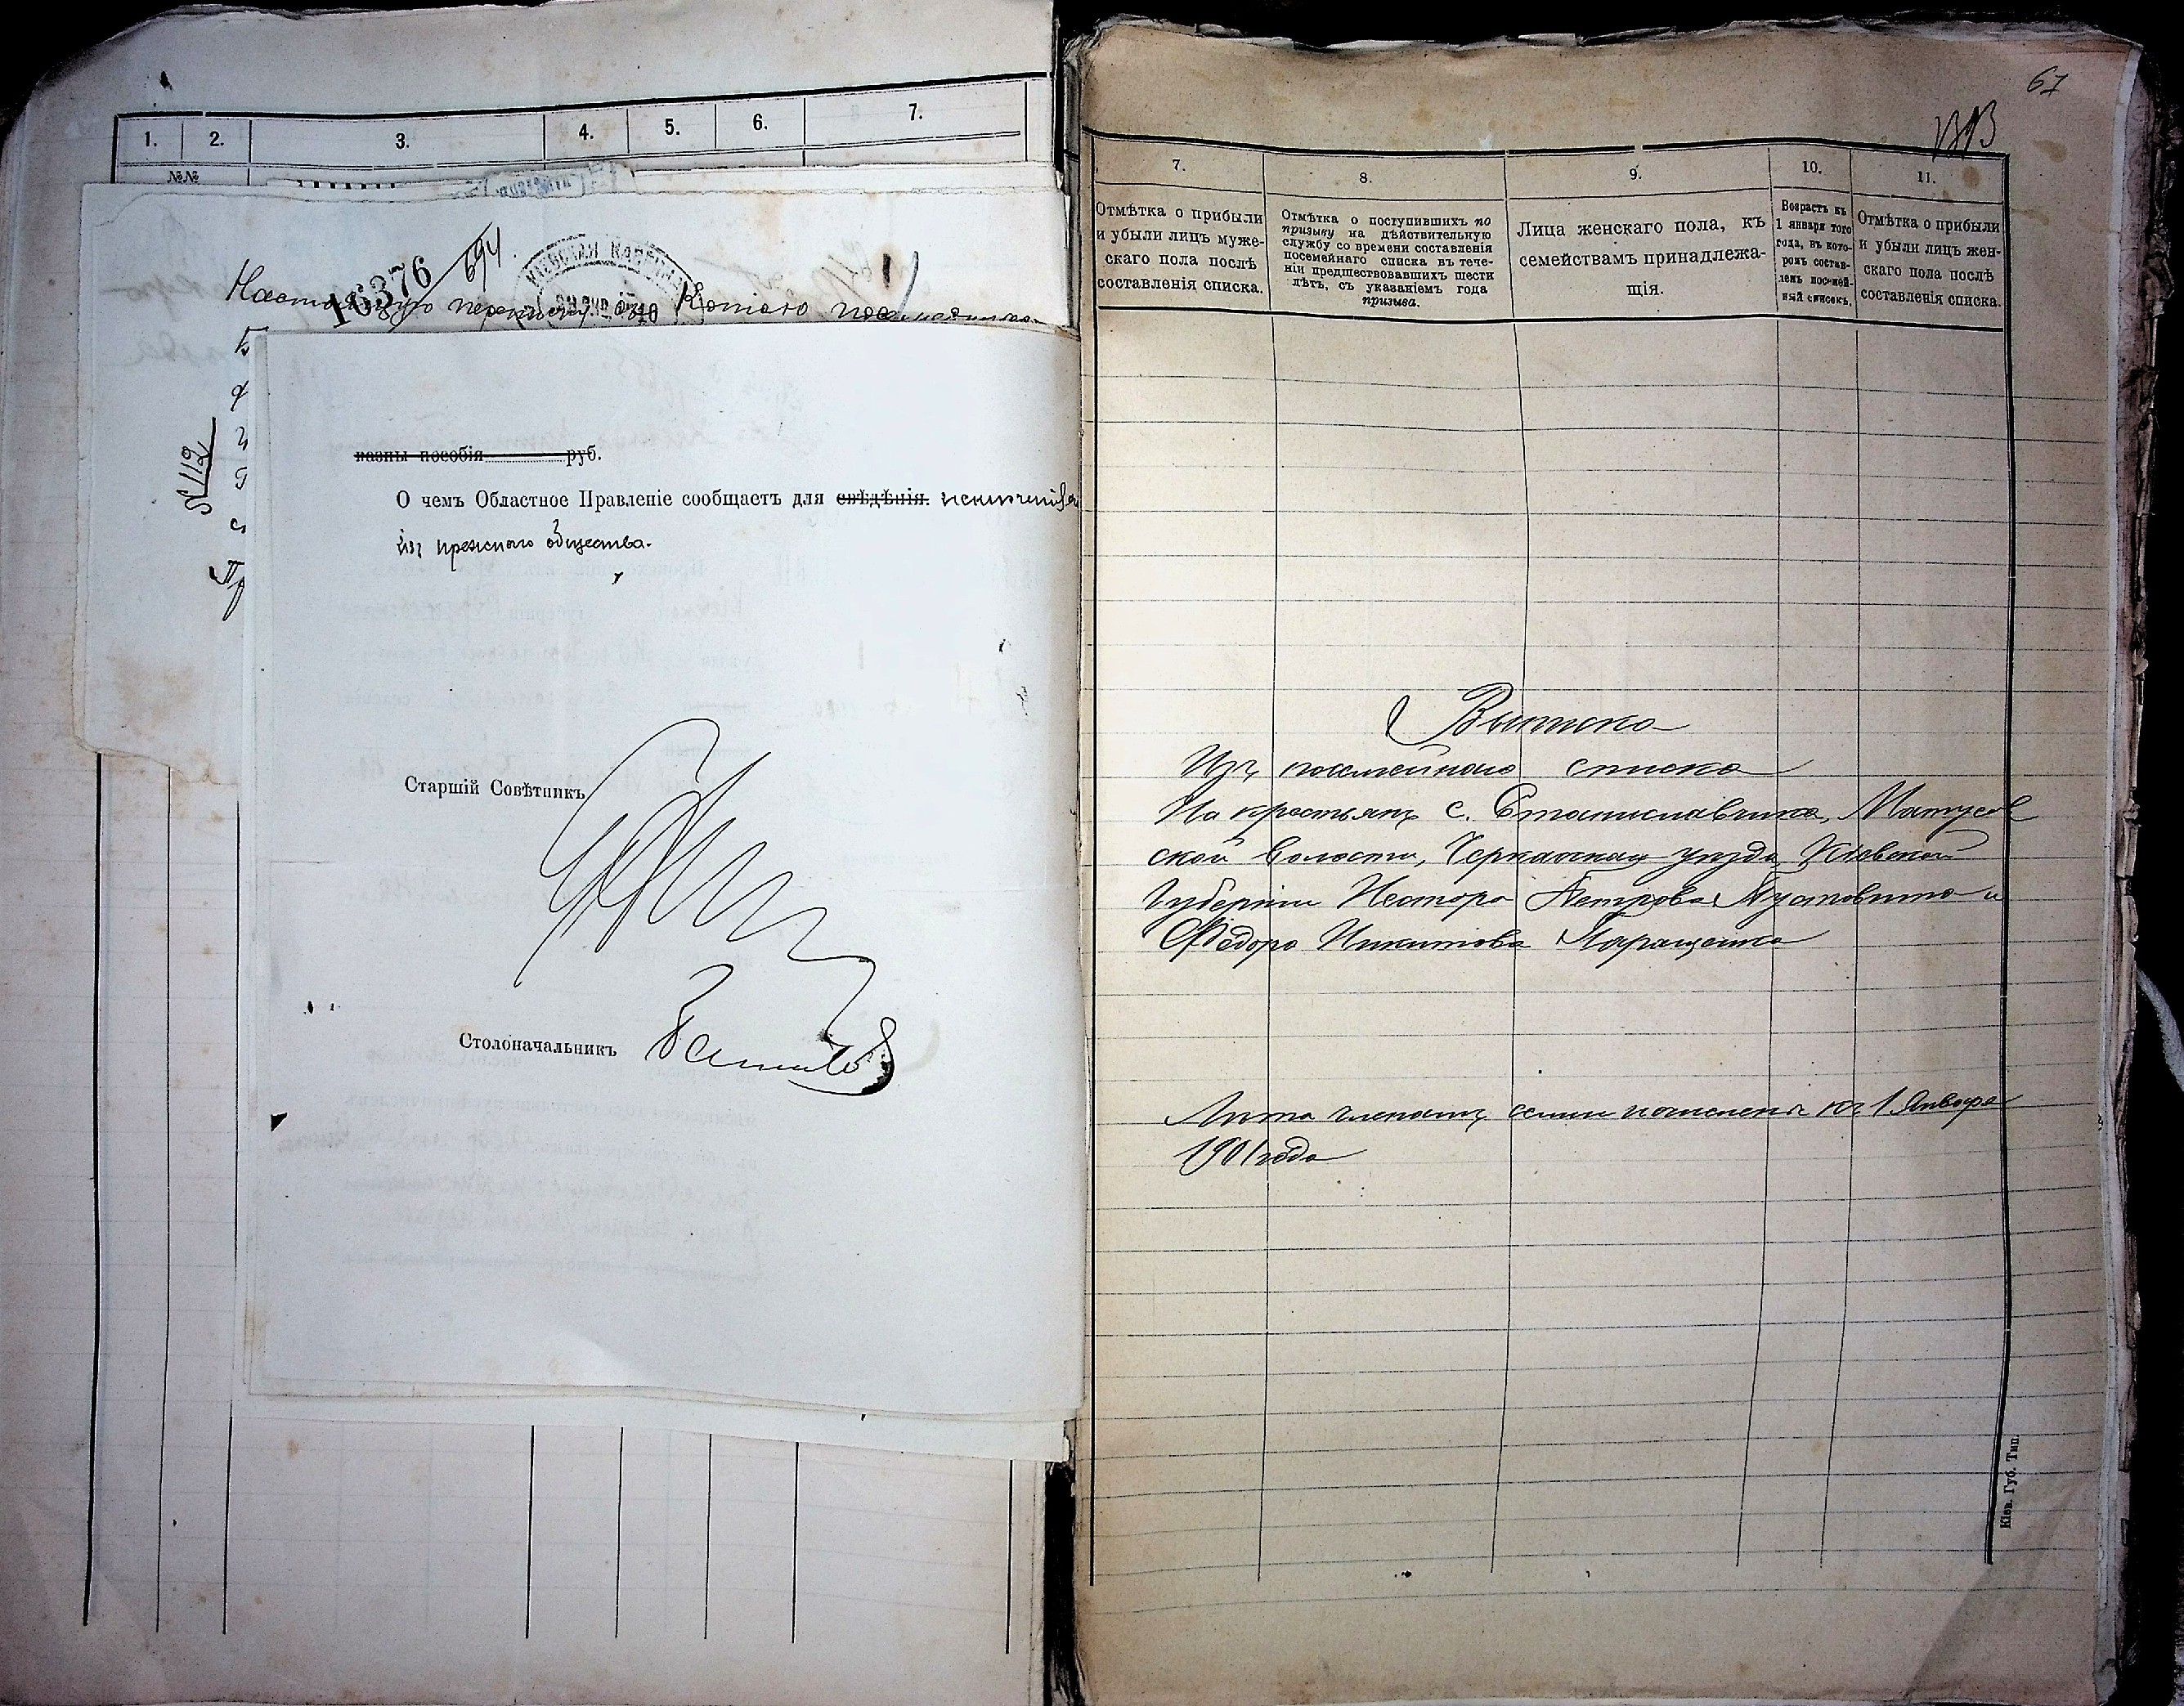 1. 2. 3. 4. 5. 6. 7.
№№
16376
694
КІЕВСКАЯ
Настоящую переписку съ Копіею
№ 112
казны пособія руб.
О чемъ Областное Правленіе сообщаетъ для свѣдѣнія. исключенія
изъ прежняго общества.
Старшій Совѣтникъ
Столоначальникъ
67
7. 8. 9. 10. 11.
Отмѣтка о прибыли
и убыли лицъ муже-
скаго пола послѣ
составленія списка.
Отмѣтка о поступившихъ по
призыву на дѣйствительную
службу со времени составленія
посемейнаго списка въ тече-
ніи предшествовавшихъ шести
лѣтъ, съ указаніемъ года
призыва.
Лица женскаго пола, къ
семействамъ принадлежа-
щія.
Возрастъ къ
1 января того
года, въ кото-
ромъ состав-
ленъ посемей-
ный списокъ.
Отмѣтка о прибыли
и убыли лицъ жен-
скаго пола послѣ
составленія списка.
Выписка
Изъ посемейнаго списка
На крестьянъ с. Станиславчика, Матусов
ской волости, Черкасскаго уѣзда, Кіевской
Губерніи Нестора Петрова Пустовита и
Ѳедора Никитова Таращенка
Лѣта членамъ семьи показаны къ 1 Января
1901 года
Кіев. Губ. Тип.